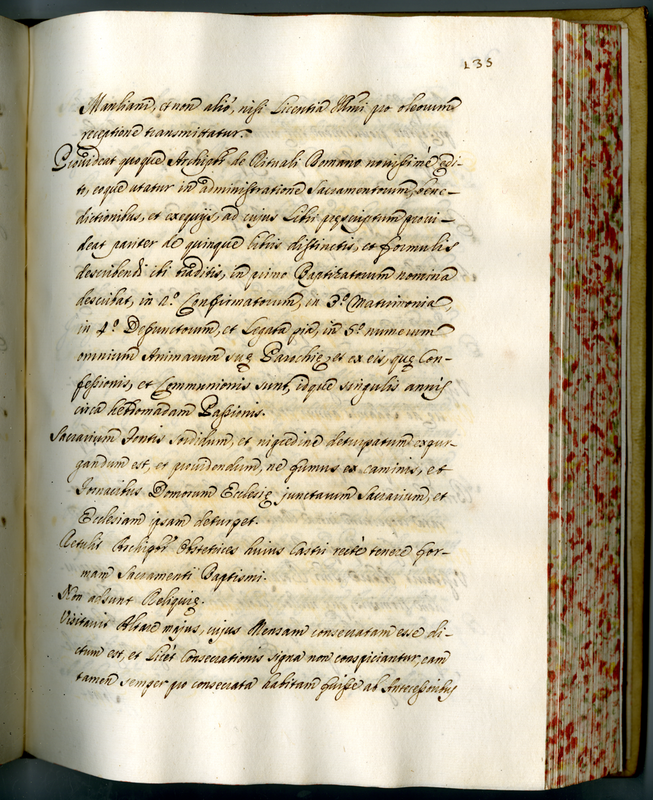 135
Manliam, et non alio, nisi Licentia Illmi pro oleorum
receptione transmittatur.
Provideat quoque Archipbr de Rituali Romano novissimè edi-
to, eoque utatur in administratione Sacramentorum, bene-
dictionibus, et exequijs, ad cujus Libri pręscriptum provi-
deat pariter de quinque libris distinctis, et formulis
describendi ibi traditis, in primo Baptizatorum nomina
describat, in 2.º Confirmatorum, in 3.º Matrimonia,
in 4.º Defunctorum, et Legata pia, in 5.º numerum
omnium Animarum suę Parochię, et ex eis, quę Con-
fessionis, et Communionis sunt, idque singulis annis
circa hebdomadam Passionis.
Sacrarium Fontis sordidum, et nigredine deturpatum expur-
gandum est, et providendum, ne fumus ex caminis, et
fornacibus Domorum Ecclesię junctarum Sacrarium, et
Ecclesiam ipsam deturpet.
Retulit Archipbr Obstetrices huius Castri rectè tenere for-
mam Sacramenti Baptismi.
Non adsunt Reliquię.
Visitavit Altare majus, cujus Mensam consecratam esse di-
ctum est, et licèt Consecrationis signa non conspiciantur, eam
tamen semper pro consecrata habitam fuisse ab Antecessoribus